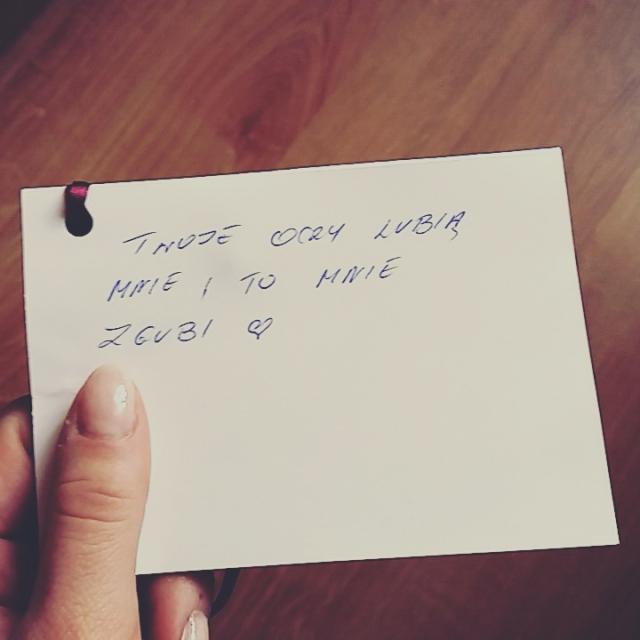 TWOJE OCZY LUBIĄ
MNIE I TO MNIE
ZGUBI ♡